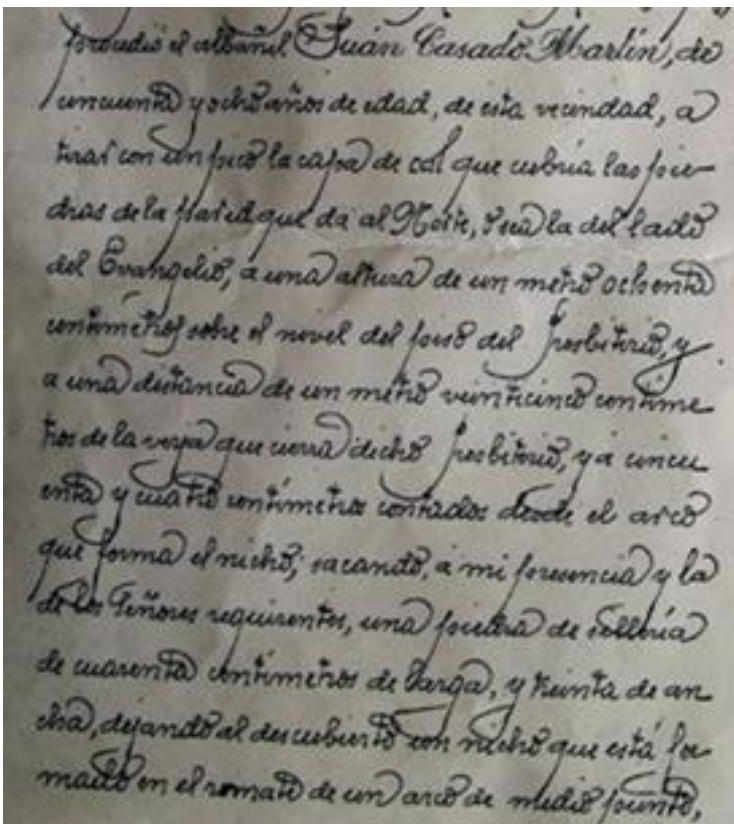 procedió el albañil Juan Casado Martín, de
cincuenta y ocho años de edad, de esta vecindad, a
tirar con un pico la capa de cal que cubría las pie-
dras de la pared que da al Norte, o sea la del lado
del Evangelio, a una altura de un metro ochenta
centímetros sobre el nivel del piso del Presbiterio, y
a una distancia de un metro veinticinco centíme
tros de la verja que cierra dicho Presbiterio, y a cincu
enta y cuatro centímetros contados desde el arco
que forma el nicho; sacando, a mi presencia y la
de los Señores requirentes, una piedra de sillería
de cuarenta centímetros de larga, y treinta de an
cha, dejando al descubierto un nicho que está for
mado en el remate de un arco de medio punto,